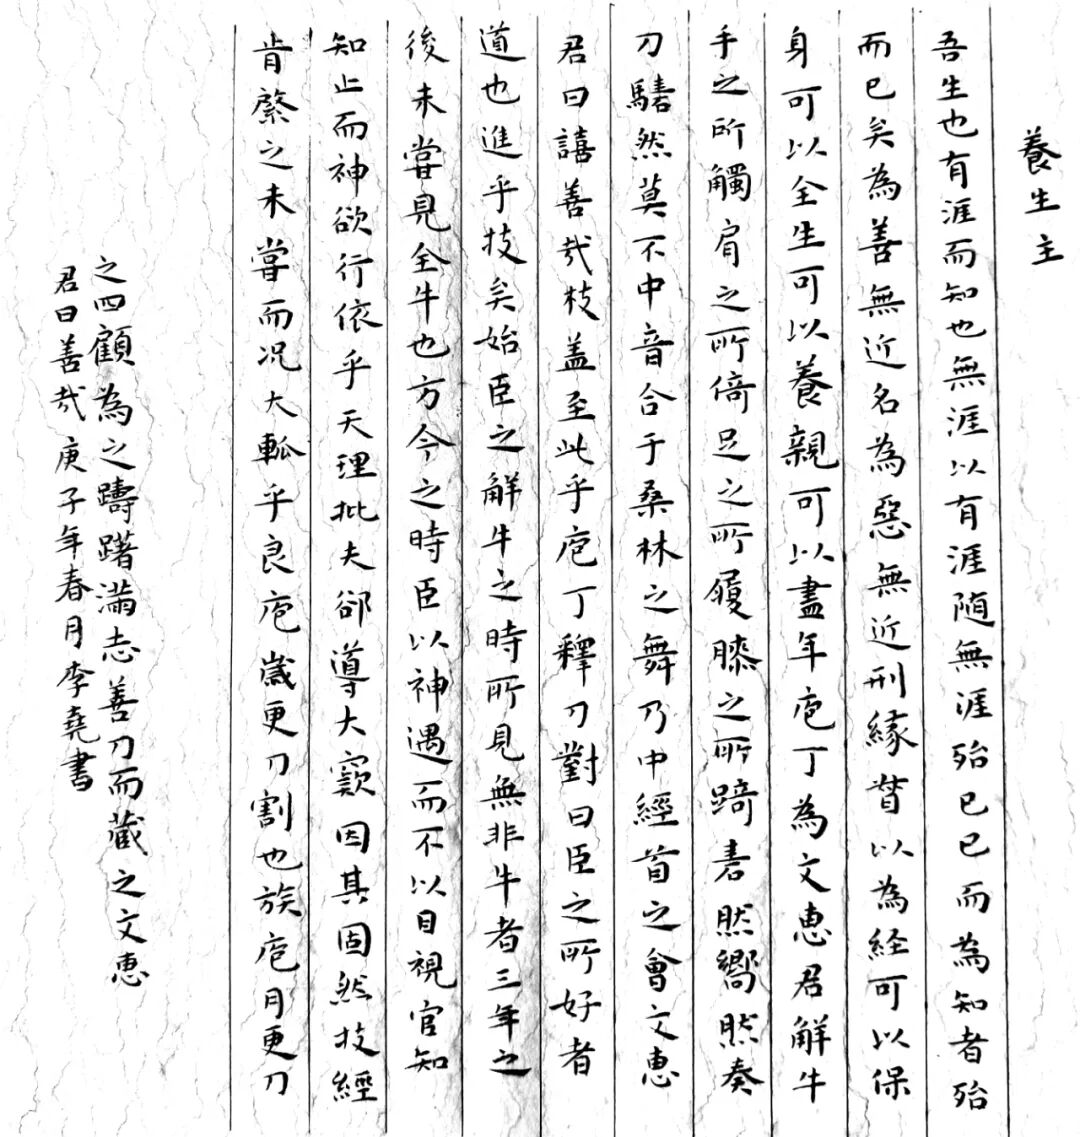 養生主
吾生也有涯而知也無涯以有涯随無涯殆已已而為知者殆
而已矣為善無近名為惡無近刑緣督以為経可以保
身可以全生可以養親可以盡年庖丁為文惠君解牛
手之所觸肩之所倚足之所履膝之所踦砉然嚮然奏
刀騞然莫不中音合于桑林之舞乃中經首之會文惠
君曰譆善哉枝盖至此乎庖丁釋刀對曰臣之所好者
道也進乎技矣始臣之解牛之時所見無非牛者三年之
後未嘗見全牛也方今之時臣以神遇而不以目視官知
知止而神欲行依乎天理批夫郤導大窾因其固然技經
肯綮之未嘗而况大軱乎良庖歲更刀割也族庖月更刀
之四顧為之躊躇滿志善刀而藏之文惠
君曰善哉庚子年春月李堯書